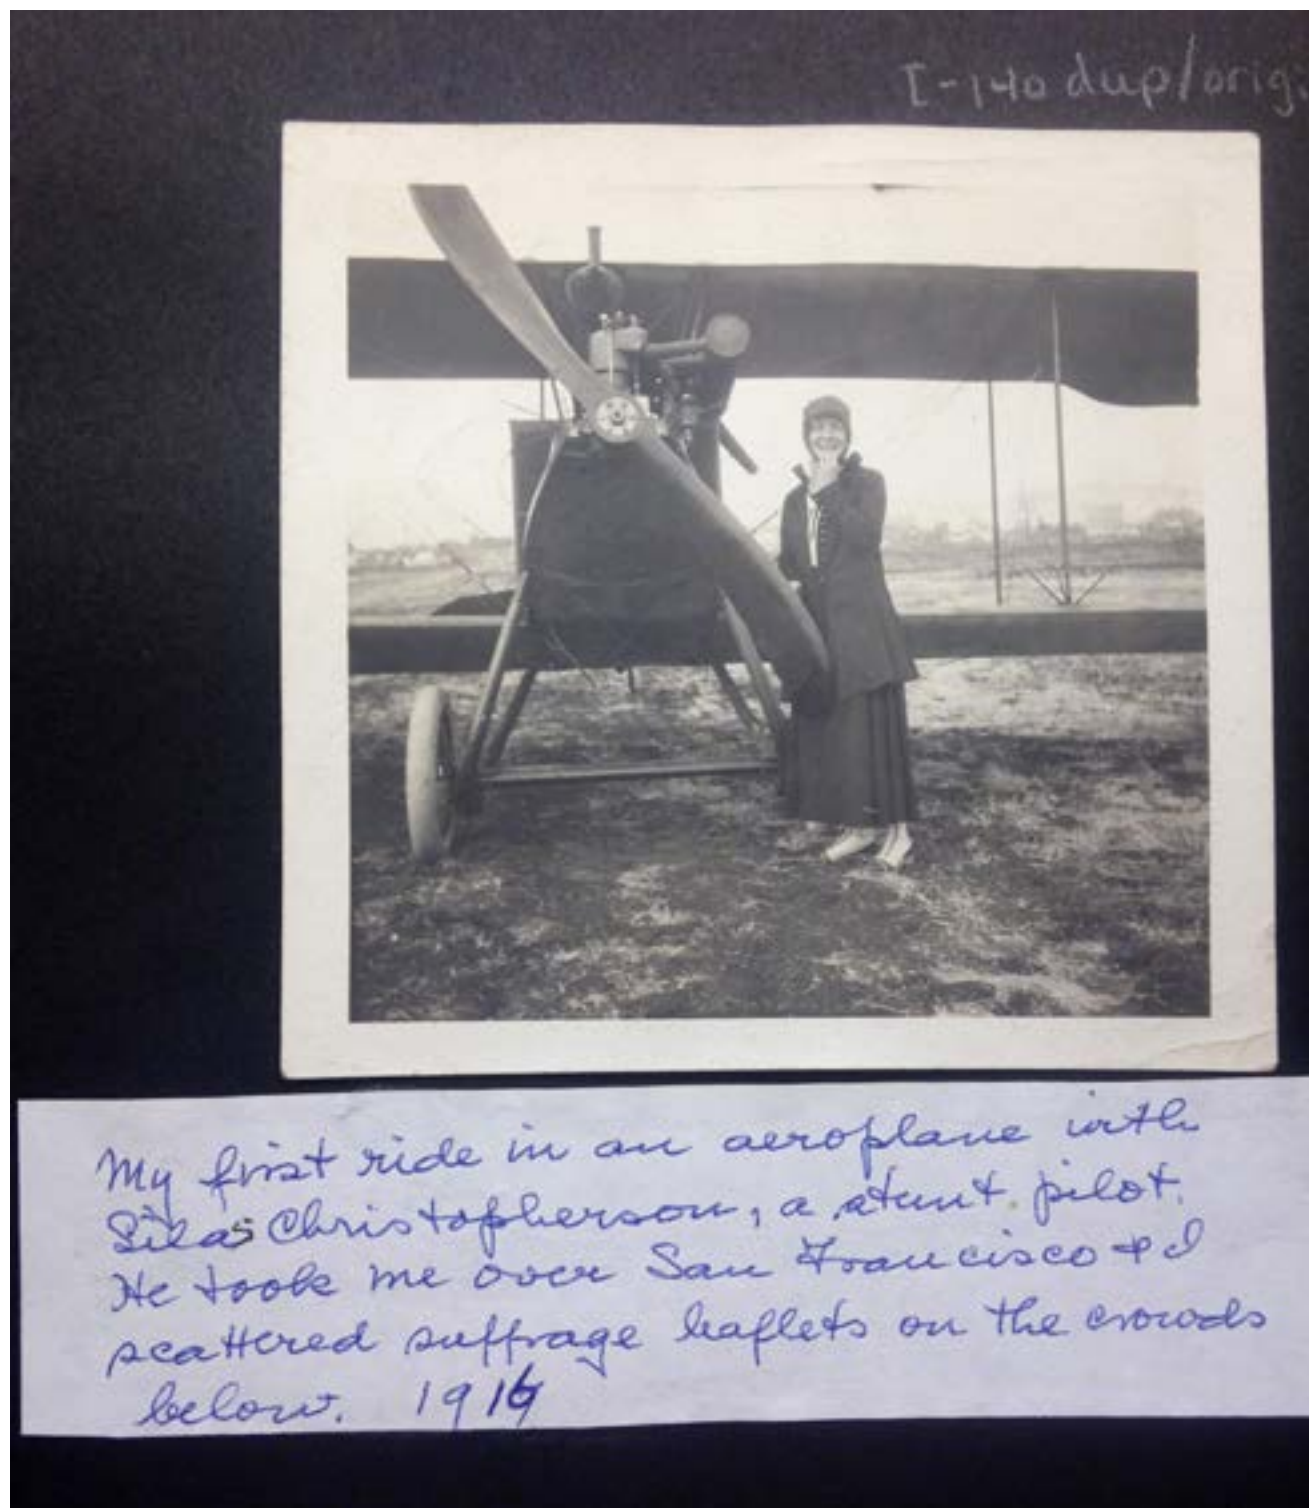 I-140 dup/orig.
My first ride in an aeroplane with
Silas Christopherson, a stunt pilot.
He took me over San Francisco & I
scattered suffrage leaflets on the crowds
below.